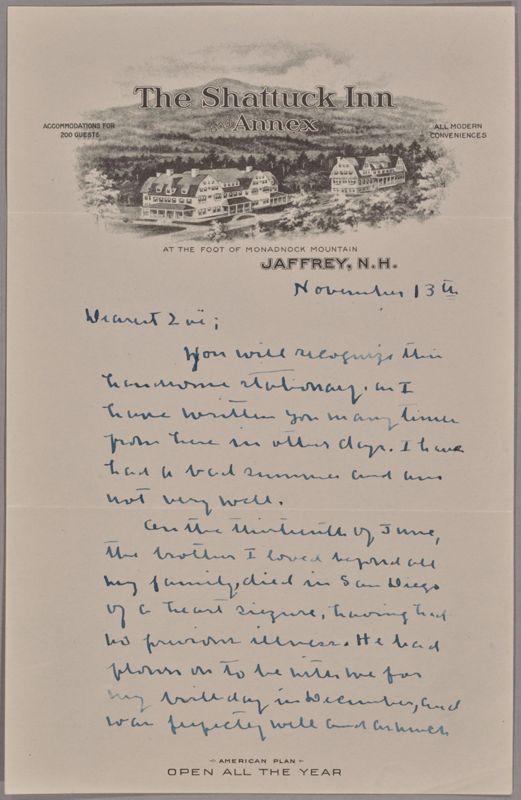 The Shattuck Inn
and Annex
ACCOMMODATIONS FOR
200 GUESTS
ALL MODERN
CONVENIENCES
AT THE FOOT OF MONADNOCK MOUNTAIN
JAFFREY, N.H.
November 13th
Dearest Zoë;
You will recognize this
handsome stationary, as I
have written you many times
from here in other days. I have
had a bad summer and am
not very well.
On the thirteenth of June,
the brother I loved beyond all
my family, died in San Diego
of a heart siezure, having had
no previous illness. He had
flown on to be with me for
my birthday in December, and
was perfectly well and as much
AMERICAN PLAN
OPEN ALL THE YEAR